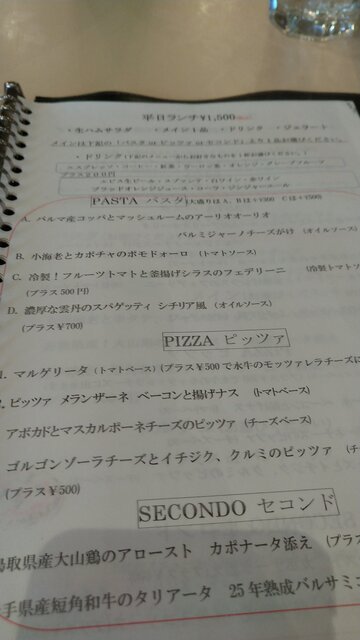 平日ランチ¥1,500
・生ハムサラダ ・メイン1品 ・ドリンク ・ジェラート
メインは下記の「パスタ or ピッツァ or セコンド」より1品お選びください。
・ドリンク(下記のメニューからお好きなものを1杯お選びください。)
エスプレッソ・コーヒー・紅茶・ウーロン茶・オレンジ・グレープフルーツ
プラス200円
エビス生ビール・スプマンテ・白ワイン・赤ワイン
ブラッドオレンジジュース・コーラ・ジンジャーエール
PASTA パスタ(大盛りはA、Bは+¥300 Cは+¥500)
A. パルマ産コッパとマッシュルームのアーリオオーリオ
パルミジャーノチーズがけ (オイルソース)
B. 小海老とカボチャのポモドォーロ (トマトソース)
C. 冷製!フルーツトマトと釜揚げシラスのフェデリーニ (冷製トマトソ
(プラス500円)
D. 濃厚な雲丹のスパゲッティ シチリア風 (オイルソース)
(プラス¥700)
PIZZA ピッツァ
1. マルゲリータ (トマトベース) (プラス¥500で水牛のモッツァレラチーズに
2. ピッツァ メランザーネ ベーコンと揚げナス (トマトベース)
アボカドとマスカルポーネチーズのピッツァ (チーズベース)
ゴルゴンゾーラチーズとイチジク、クルミのピッツァ (チ
(プラス¥500)
SECONDO セコンド
鳥取県産大山鶏のアロースト カポナータ添え (プラ
手県産短角和牛のタリアータ 25年熟成バルサミコ